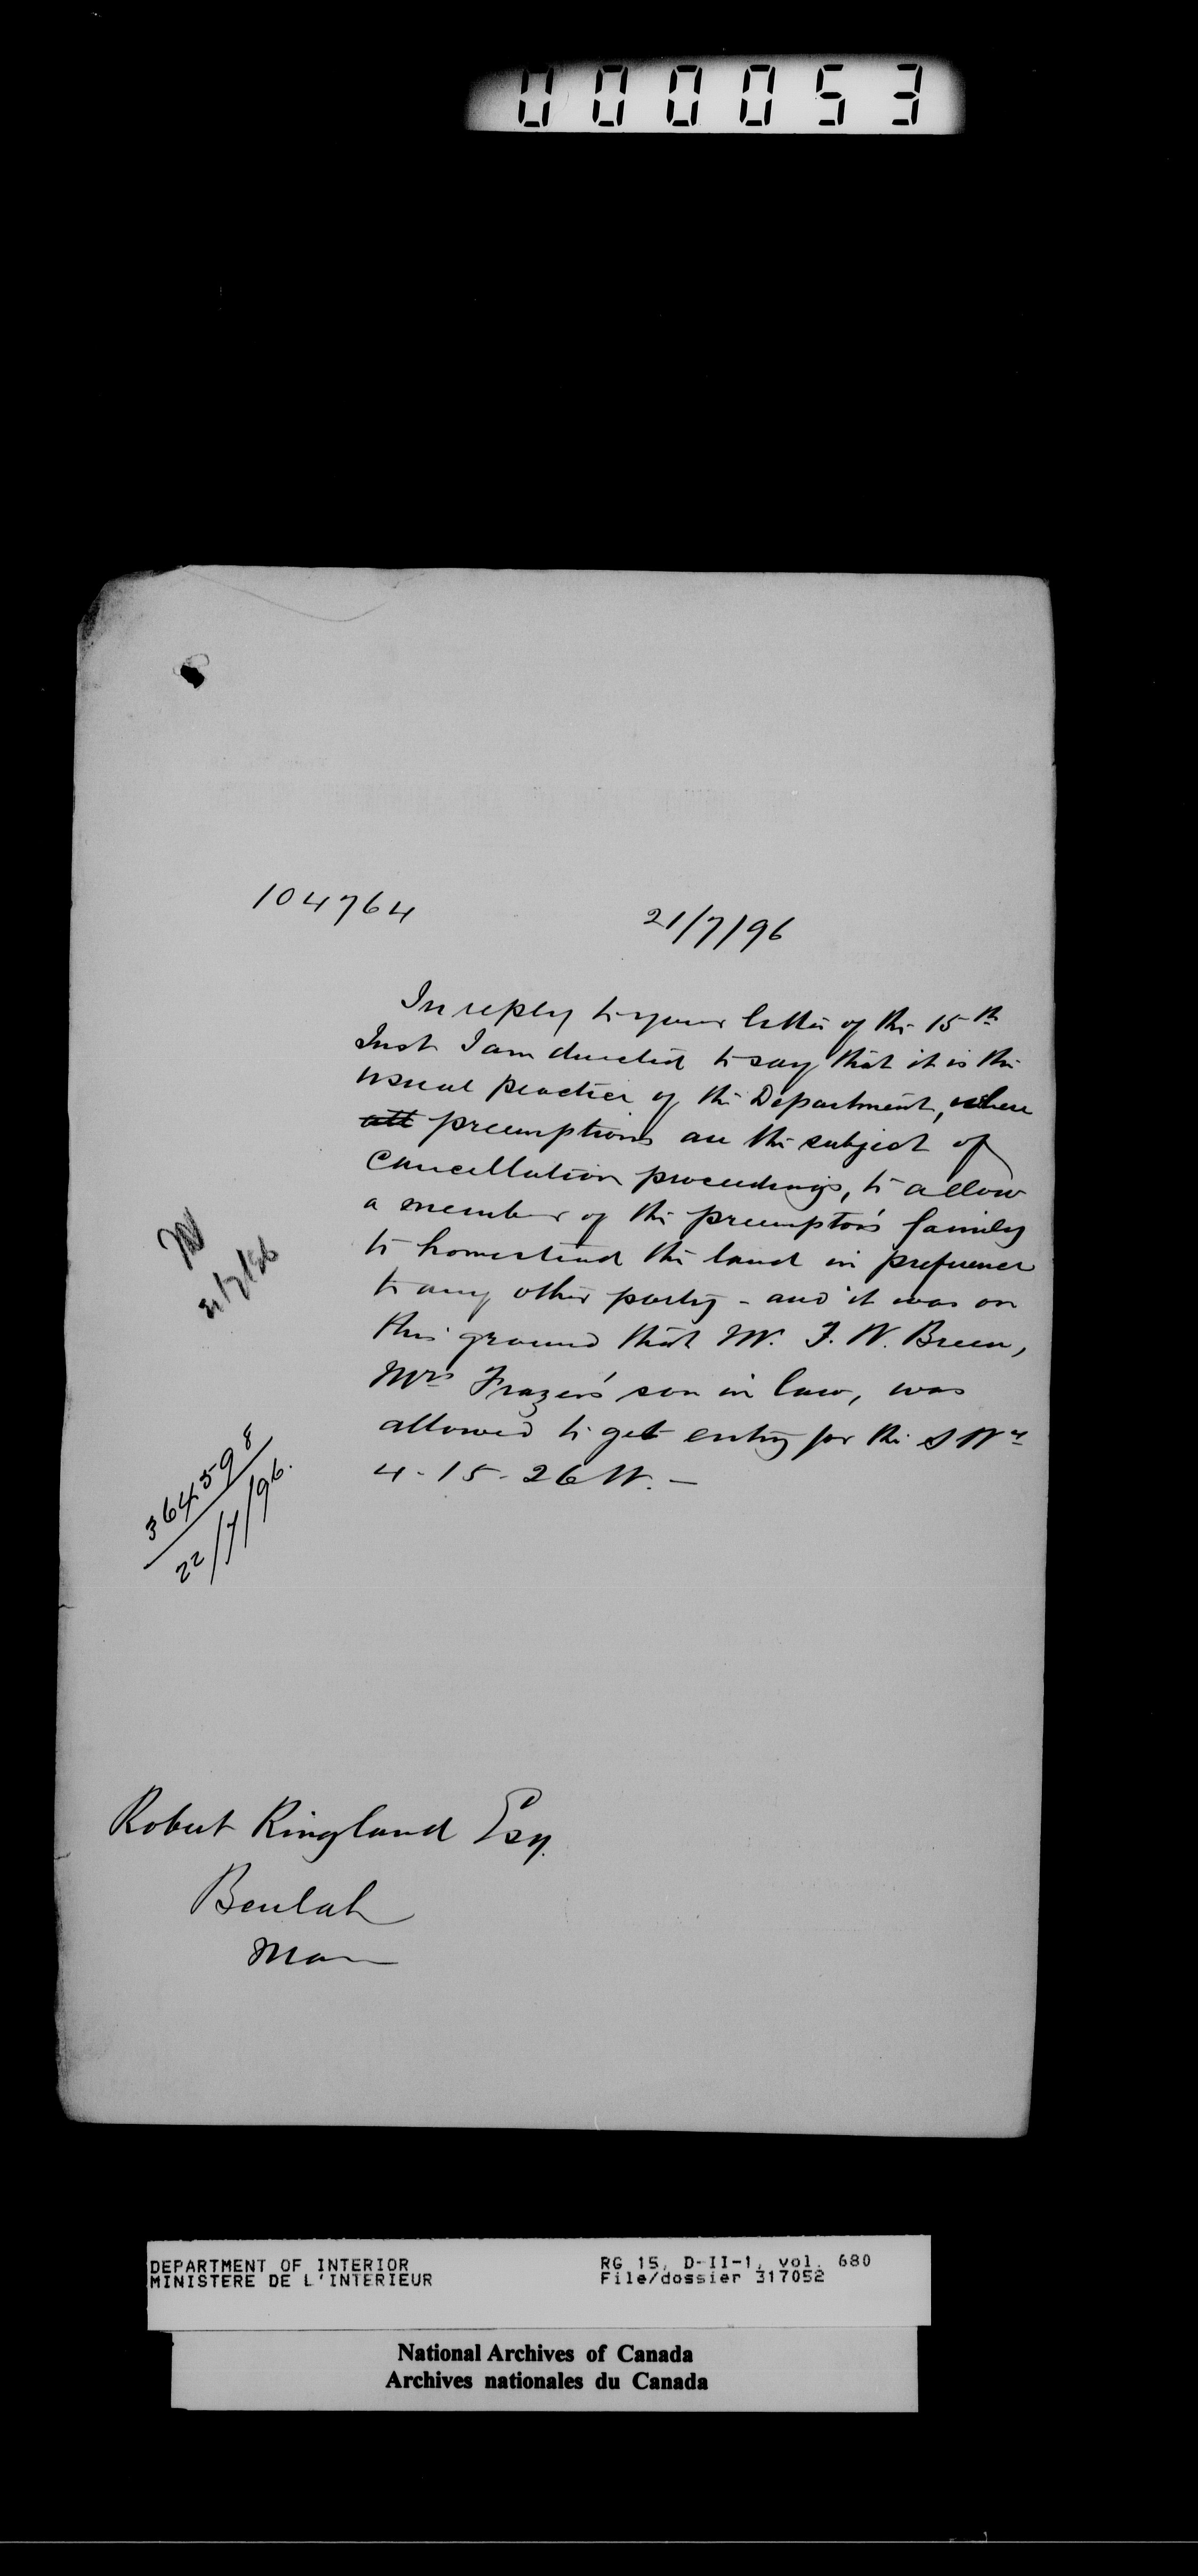 000053
104764
21/7/96
In reply to your letter of the 15th
Inst I am directed to say that it is the
usual practice of the Department, where
all preemptions are the subject of
cancellation proceedings, to allow
a member of the preemptor's family
to homestead the land in preference
to any other party - and it was on
this ground that Mr. F. W. Breen,
Mrs Frazer's son in law, was
allowed to get entry for the S W ¼
4-15-26 W. -
21/7/96
364598
22/7/96.
Robert Ringland Esq.
Beulah
Man
DEPARTMENT OF INTERIOR
MINISTERE DE L'INTERIEUR
RG 15, D-II-1, vol. 680
File/dossier 317052
National Archives of Canada
Archives nationales du Canada